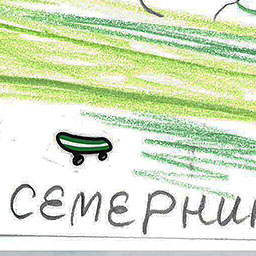 СЕМЕРНИ